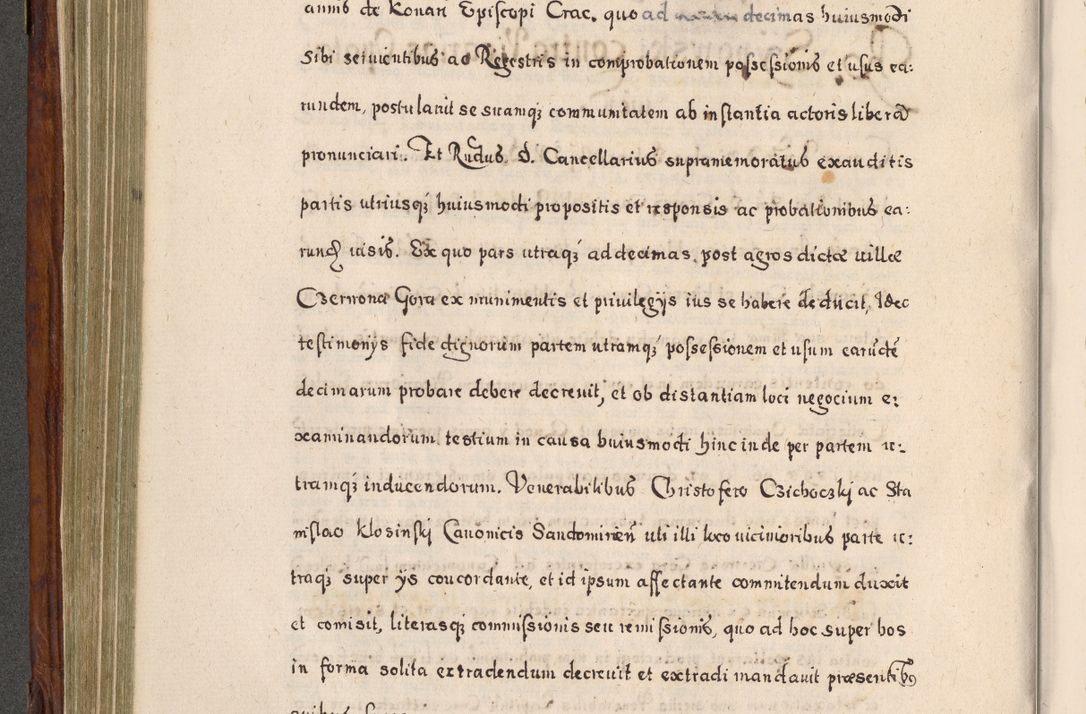 annis de Konari Episcopi Crac. quo ad decimas huiusmodi
sibi seruientibus ac Regestris in comprobationem possessionis et usus ea:
rundem, postulauit se suamq́ communitatem ab instantia actoris liberā
pronunciari. Et Rndus D. Cancellarius supramemoratus exauditis
partis utriusq́ huiusmodi propositis et responsis ac probationibus ea:
rund̄ uisis. Ex quo pars utraq́ ad decimas post agros dictæ uillæ
Czerwona Gora ex munimentis et priuilegijs ius se habere deducit, Idec
testimonijs fide dignorum partem utramq́ possessionem et usum earūdē
decimarum probare debere decreuit, et ob distantiam loci negocium e:
xaminandorum testium in causa huiusmodi hinc inde per partem u:
tramq́ inducendorum. Venerabilibus Christofero Czichoczkj ac Sta
nislao Klosinskj Canonicis Sandomirien̄ uti illi loco uicinioribus parte u:
traq́ super ijs concordante, et id ipsum affectante committendum duxit
et comisit, literasq́ commissionis seu remissionis, quo ad hoc super hos
in forma solita extradendum decreuit et extradi mandauit præsentibꝰ